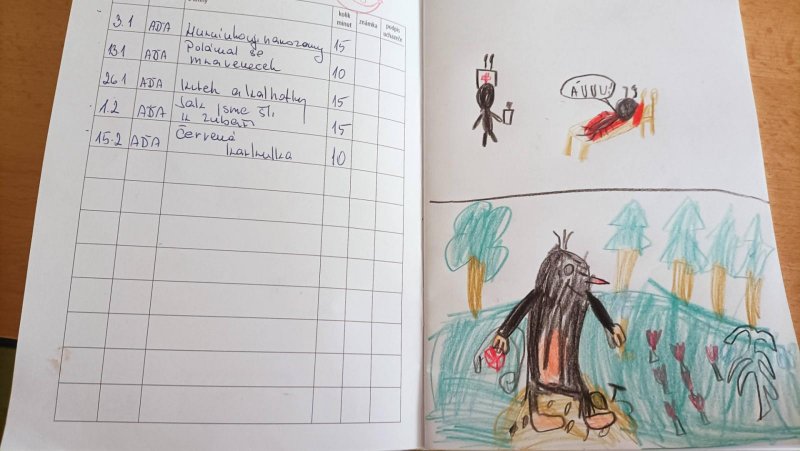 kolik minut
známka
podpis učitele
3.1 AĎA Hurvínkovy narozeniny 15
13.1 AĎA Polámal se mraveneček 10
26.1 AĎA Krtek a kalhotky 15
1.2 AĎA Jak jsme šli k zubaři 15
15.2 AĎA Červená karkulka 10
ÁUUU!